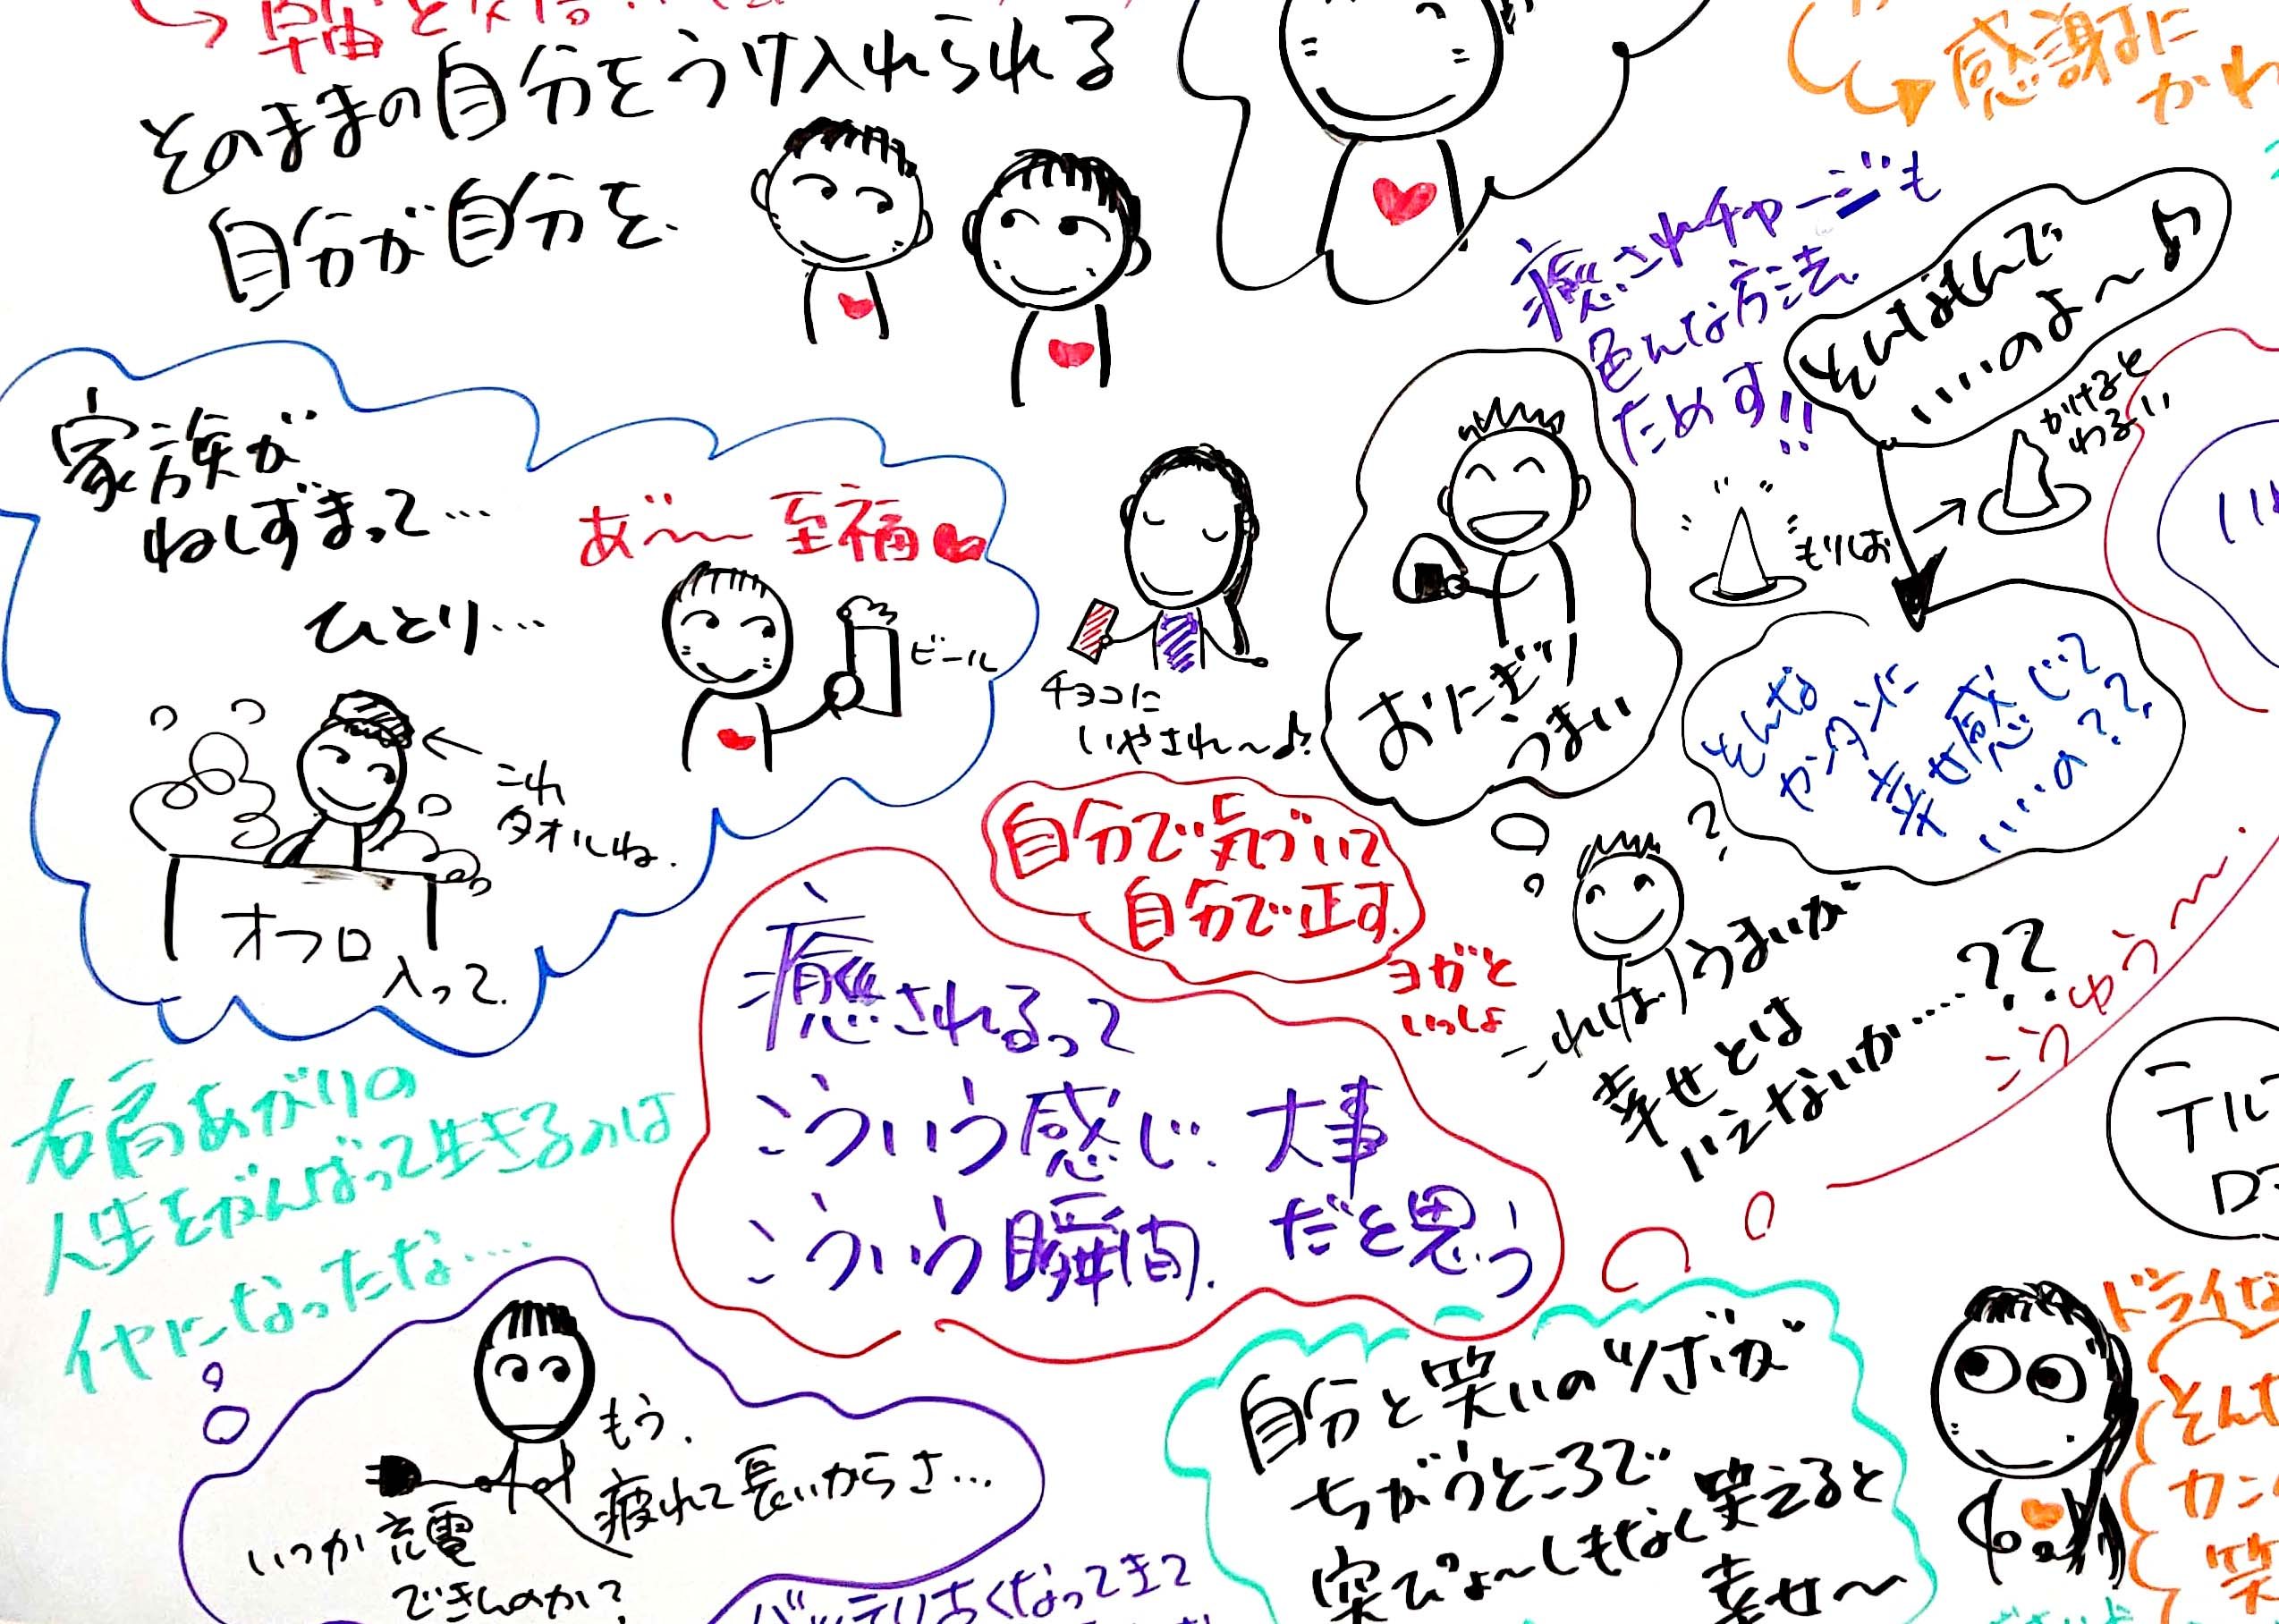 そのままの自分をうけ入れられる
自分が自分を.
感謝に
かわ
癒されチャージも
色んな方法
ためす!!
そんなもんで
いいのよ〜♪
かけると
わるい
もりしお
家族が
ねしずまって…
ひとり…
あ゛〜〜 至福
ビール
これ
タオルね.
オフロ
入って.
チョコに
いやされ〜♪
おにぎり
うまい
そんな
カンタンに
幸せ感じて
いいの??
自分で気づいて
自分で正す.
ヨガと
いっしょ
?
これは うまいが
幸せとは
いえないか……??
こうゆう〜
癒されるって
こういう感じ. 大事
こういう瞬間. だと思う
右肩あがりの
人生をがんばって生きるのは
イヤになったな…
もう.
疲れて長いからさ…
いつか充電
できんのか?
自分と笑いのツボが
ちがうところで
突ぴょ〜しもなく笑えると
幸せ〜
ドライな
カン
笑